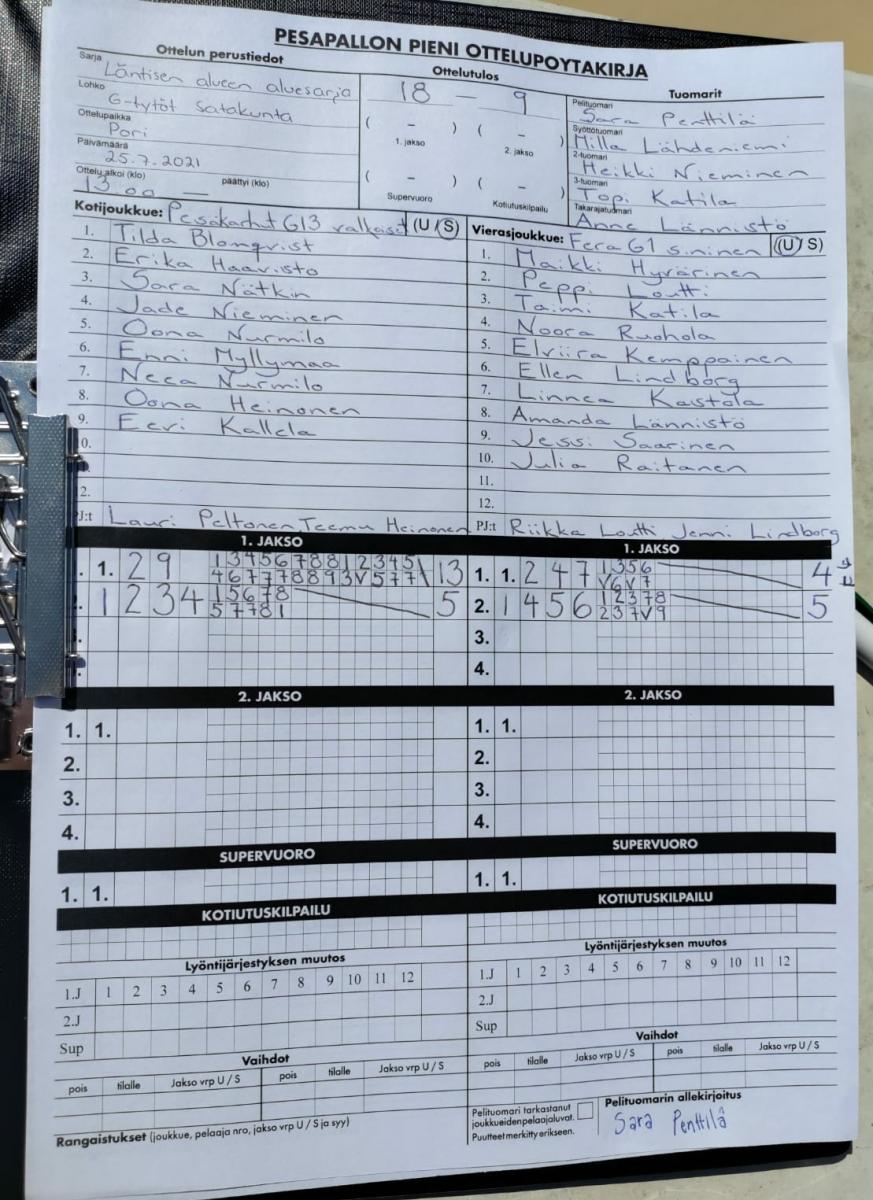 PESAPALLON PIENI OTTELUPOYTAKIRJA
Ottelun perustiedot
Sarja Läntisen alueen aluesarja
Lohko G-tytöt Satakunta
Ottelupaikka Pori
Päivämäärä 25.7.2021
Ottelu alkoi (klo) 13.00 — päättyi (klo)
Ottelutulos
18 – 9
( – ) ( – )
1. jakso 2. jakso
( – ) ( – )
Supervuoro Kotiutuskilpailu
Tuomarit
Pelituomari Sara Penttilä
Syöttötuomari Milla Lähdeniemi
2-tuomari Heikki Nieminen
3-tuomari Topi Katila
Takarajatuomari Anne Lännistö
Kotijoukkue: Pesäkarhut G13 valkoiset (U / S)
1. Tilda Blomqvist
2. Erika Haavisto
3. Sara Nätkin
4. Jade Nieminen
5. Oona Nurmilo
6. Enni Myllymaa
7. Neea Nurmilo
8. Oona Heinonen
9. Eevi Kallela
0.
2.
PJ:t Lauri Peltonen Teemu Heinonen
Vierasjoukkue: Fera G1 sininen (U / S)
1. Maikki Hyvärinen
2. Peppi Loutti
3. Taimi Katila
4. Noora Ruohola
5. Elviira Kemppainen
6. Ellen Lindborg
7. Linnea Kastola
8. Amanda Lännistö
9. Jessi Saarinen
10. Julia Raitanen
11.
12.
PJ:t Riikka Loutti Jenni Lindborg
1. JAKSO
1. 2 9 1 3 4 5 6 7 8 8 1 2 3 4 5 13
4 6 7 7 7 8 8 9 3 V 5 7 7
1 2 3 4 1 5 6 7 8 5
5 7 7 8 1
1. JAKSO
1. 1. 2 4 7 1 3 5 6 4
V 6 V 7
2. 1 4 5 6 1 2 3 7 8 5
2 3 7 V 9
3.
4.
2. JAKSO
1. 1.
2.
3.
4.
2. JAKSO
1. 1.
2.
3.
4.
SUPERVUORO
1. 1.
SUPERVUORO
1. 1.
KOTIUTUSKILPAILU
KOTIUTUSKILPAILU
Lyöntijärjestyksen muutos
1.J 1 2 3 4 5 6 7 8 9 10 11 12
2.J
Sup
Lyöntijärjestyksen muutos
1.J 1 2 3 4 5 6 7 8 9 10 11 12
2.J
Sup
Vaihdot
pois tilalle Jakso vrp U / S pois tilalle Jakso vrp U / S
Vaihdot
pois tilalle Jakso vrp U / S pois tilalle Jakso vrp U / S
Rangaistukset (joukkue, pelaaja nro, jakso vrp U / S ja syy)
Pelituomari tarkastanut
joukkueidenpelaajaluvat.
Puutteet merkitty erikseen.
Pelituomarin allekirjoitus
Sara Penttilä